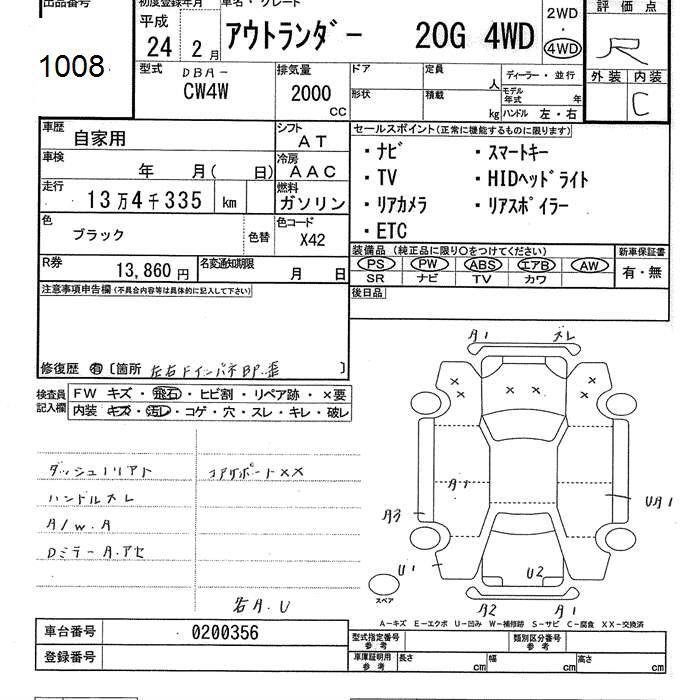 出品番号 初度登録年月 車名・グレード 評価点
1008 平成 24 2月 アウトランダー 20G 4WD 2WD ・ 4WD R
型式 DBA- CW4W 排気量 2000 CC ドア 定員 人 ディーラー・並行 外装 内装
形状 積載 kg モデル年式 年 ハンドル 左・右 C
車歴 自家用 シフト AT セールスポイント(正常に機能するものに限ります)
車検 年 月( 日) 冷房 AAC ・ナビ ・スマートキー
走行 13万4千335 km 燃料 ガソリン ・TV ・HIDヘッドライト
・リアカメラ ・リアスポイラー
色 ブラック 色替 色コード X42 ・ETC
装備品(純正品に限り○をつけてください) 新車保証書
R券 13,860円 名変通知期限 月 日 PS PW ABS エアB AW 有・無
SR ナビ TV カワ
注意事項申告欄(不具合内容等は具体的に記入して下さい) 後日品
修復歴 有 〔箇所 左右Fインパネ BP.歪 〕
検査員記入欄 FW キズ・飛石・ヒビ割・リペア跡・×要
内装 キズ・汚レ・コゲ・穴・スレ・キレ・破レ
A1 ズレ
× × × ×
× ×
ダッシュ コアサポートXX
ハンドルスレ A1
A/W.A A3 UA1
Dミラー A.
U1 U2
スペア
A.U A2 A1
A-キズ E-エクボ U-凹み W-補修跡 S-サビ C-腐食 XX-交換済
車台番号 0200356 型式指定番号 参考 類別区分番号 参考
登録番号 車庫証明用 参考 長さ cm 幅 cm 高さ cm